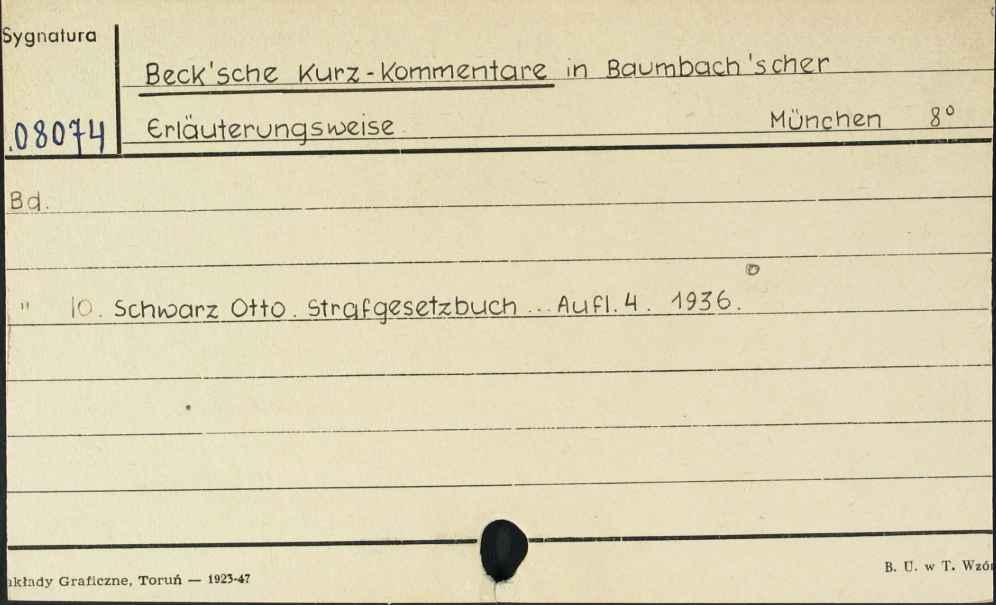 Sygnatura
Beck'sche Kurz-Kommentare in Baumbach'scher
.08074 Erläuterungsweise München 8°
Bd.
" 10. Schwarz Otto. Strafgesetzbuch ... Aufl. 4. 1936.
akłady Graficzne, Toruń — 1923-47
B. U. w T. Wzór